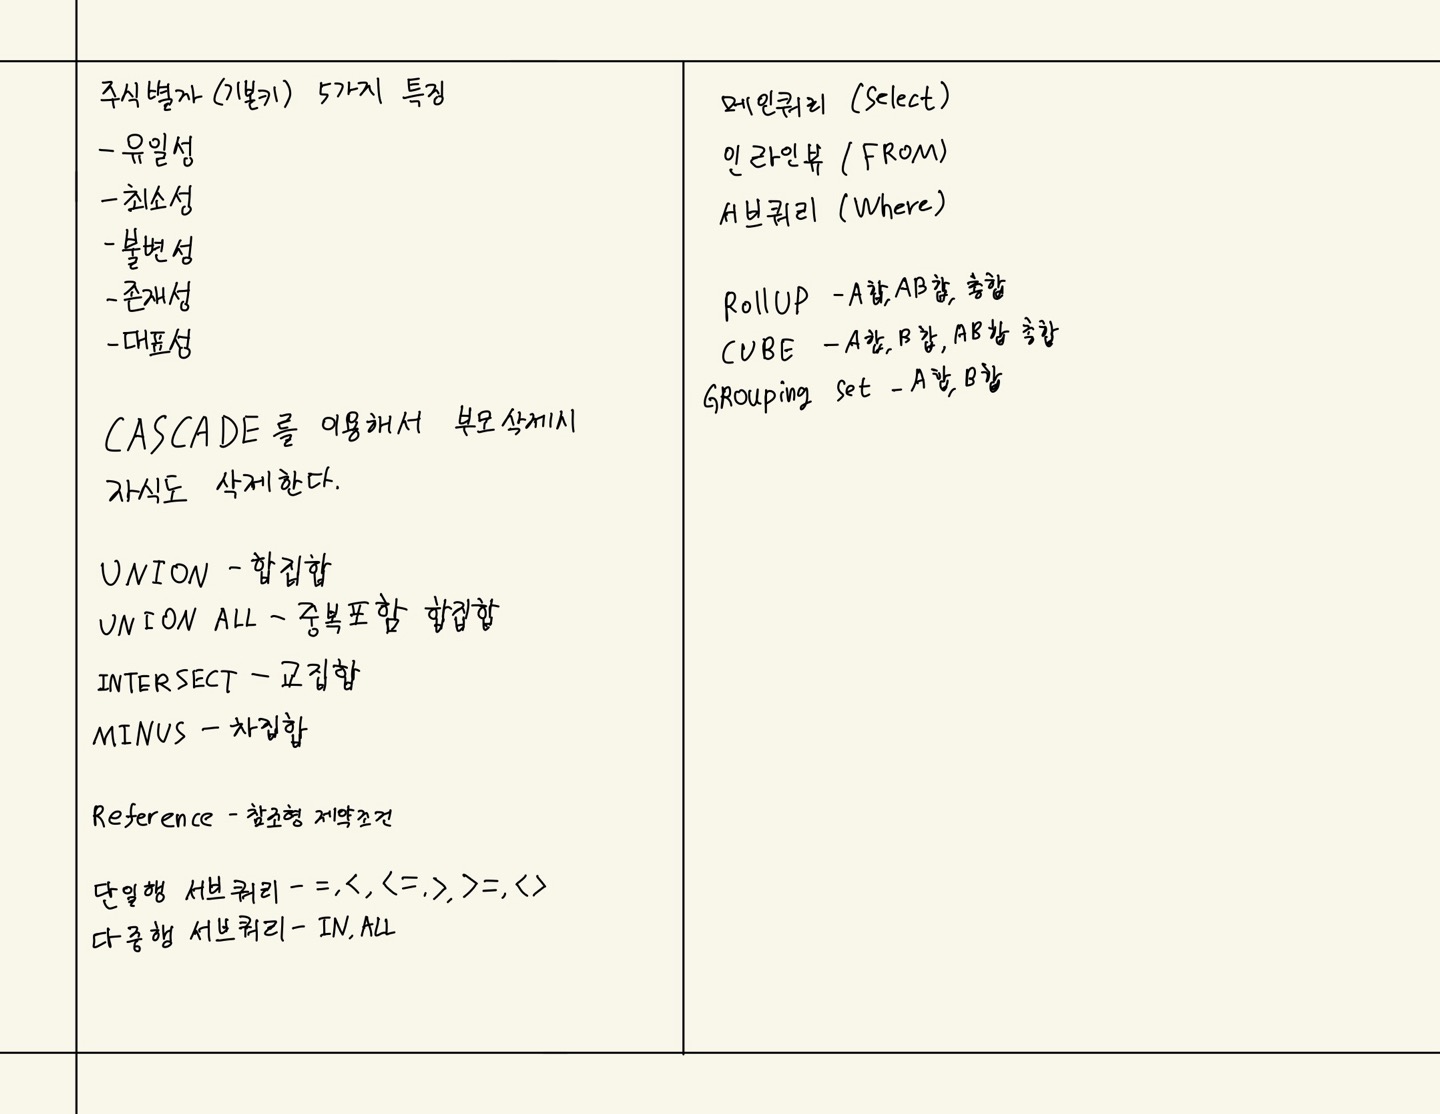 주식별자 (기본키) 5가지 특징
- 유일성
- 최소성
- 불변성
- 존재성
- 대표성
CASCADE를 이용해서 부모삭제시
자식도 삭제한다.
UNION - 합집합
UNION ALL - 중복포함 합집합
INTERSECT - 교집합
MINUS - 차집합
Reference - 참조형 제약조건
단일행 서브쿼리 - =, <, <=, >, >=, <>
다중행 서브쿼리 - IN, ALL
메인쿼리 (Select)
인라인뷰 (FROM)
서브쿼리 (Where)
RollUP - A합, AB합, 총합
CUBE - A합, B합, AB합 총합
GROuping set - A합, B합